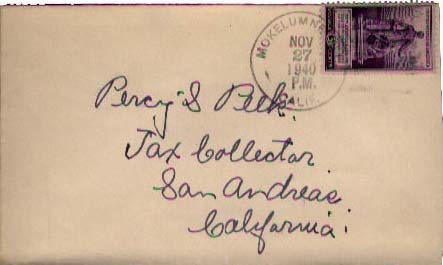 MOKELUMN
NOV
27
1940
P.M.
CALIF.
Percy S Peek.
Tax Collector
San Andreas
California.